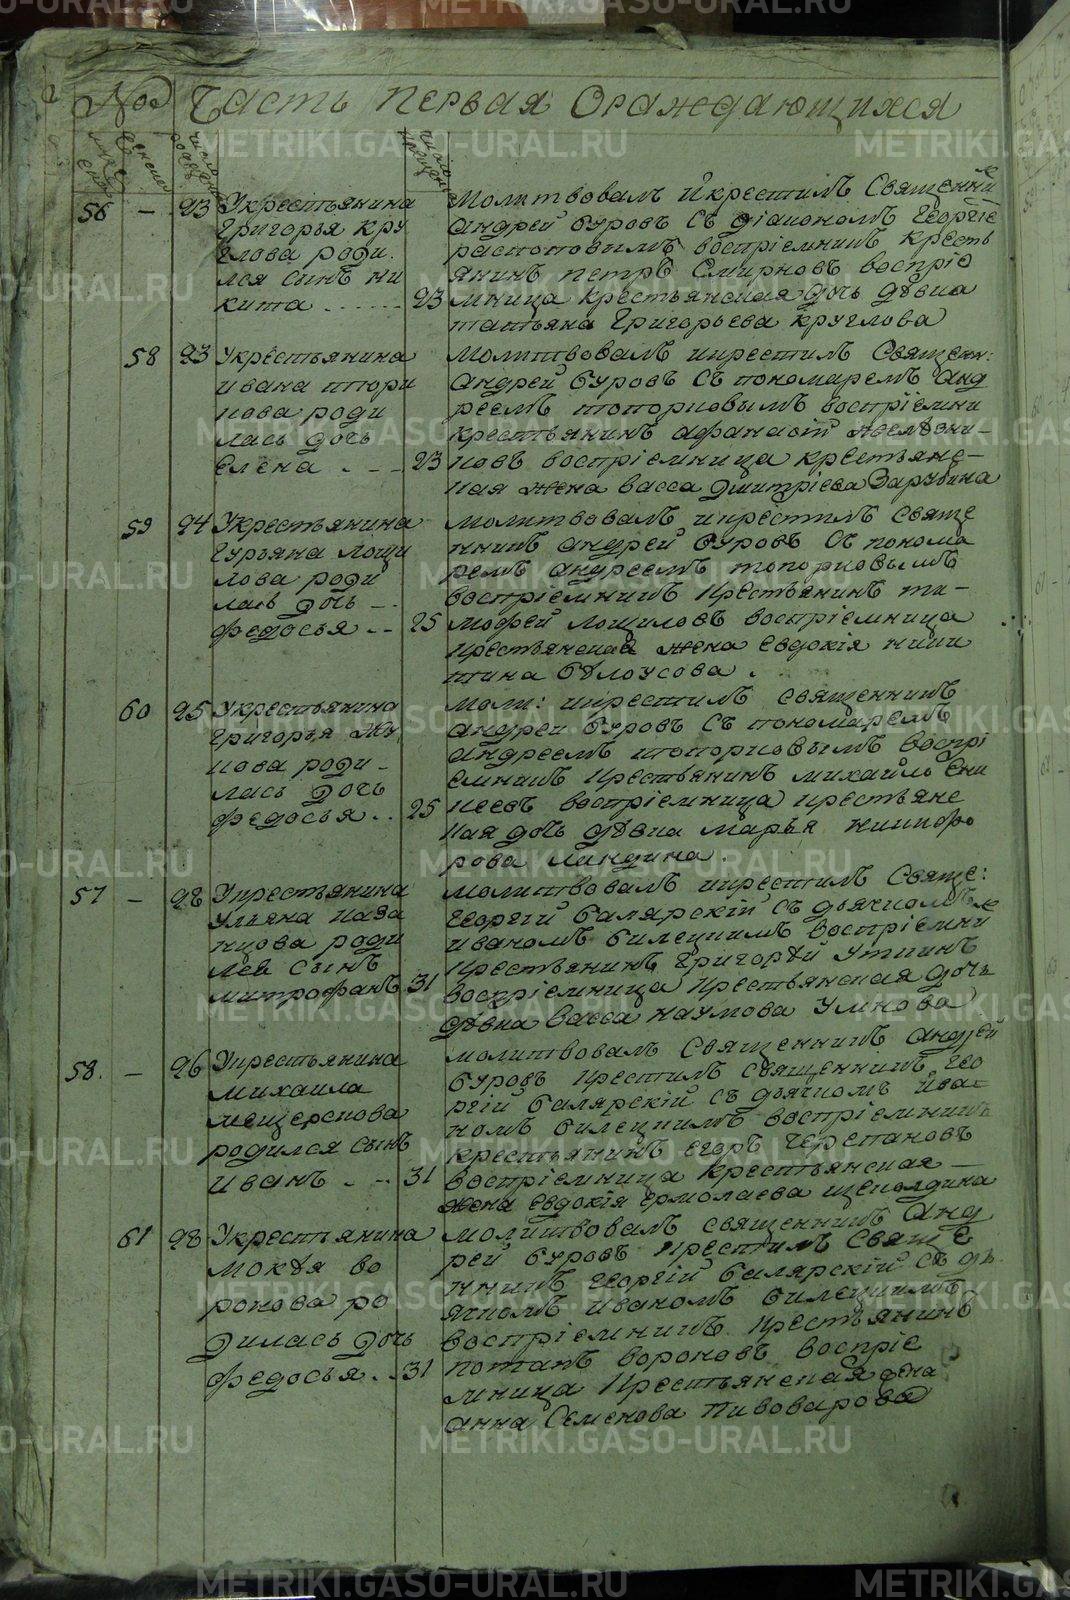 № Часть первая Ораждающихся
56 — 23 Укрестьянина
Григорья Кру
глова роди
лся сынъ ни
кита . . . . . 23
Молитвовалъ икрестилъ Священни
андрей буровъ съ діакономъ Георгіе
распоповымъ воспріемникъ кресть
янинъ петръ Смирновъ воспріе
мница крестьянская дочь дѣвка
татьяна Григорьева круглова
58 23 Укрестьянина
ивана птори
нова роди
лась дочь
Елена . . . 23
Молитвовалъ икрестилъ Священ:
андрей буровъ съ пономаремъ анд
реемъ топорковымъ воспріемни
крестьянинъ афанасій
новъ воспріемница крестьянс—
кая жена васса Дмитріева Зарубина
59 24 Укрестьянина
Гурьяна лощи
лова роди
лась дочь —
федосья . . 25
молитвовалъ икрестилъ Свяще
нникъ андрей буровъ съ понома
ремъ андреемъ топорковымъ
воспріемникъ крестьянинъ ти—
мофей лощиловъ воспріемница
крестьянская жена евдокія ники
тина бѣлоусова .
60 25 Укрестьянина
Григорья Жу
кова роди—
лась дочь
федосья . . 25
моли: икрестилъ священникъ
андрей буровъ съ пономаремъ
андреемъ топорковымъ воспрі
емникъ крестьянинъ михайло
воспріемница крестьянс
кая дочь дѣвка марья никифо
рова .
57 — 28 Укрестьянина
Ульяна каза
нцова роди
лся сынъ
митрофанъ 31
молитвовалъ икрестилъ Свяще:
георгій балярскій съ дьячкомъ
иваномъ билецкимъ воспріемни
крестьянинъ Григорѣй Уткинъ
воспріемница крестьянская дочь
дѣвка васса наумова Умнова
58. — 26 Укрестьянина
михаила
мещерскова
родился сынъ
иванъ . . . 31
молитвовалъ священникъ андрей
буровъ крестилъ священникъ гео
ргій балярскій съ дьячкомъ ива—
номъ билецкимъ воспріемникъ
крестьянинъ егоръ черепановъ
воспріемница крестьянская —
жена евдокія ермолаева щеколдина
61 28 Укрестьянина
мокѣя во
ронова ро
дилась дочь
федосья . . 31
молитвовалъ священникъ анд
рей буровъ крестилъ Свяще
нникъ георгій балярскій съ дь
ячкомъ иваномъ билецкимъ
воспріемникъ крестьянинъ
потапъ вороновъ воспріе
мница крестьянская жена
анна Семенова Пивоварова
METRIKI.GASO-URAL.RU